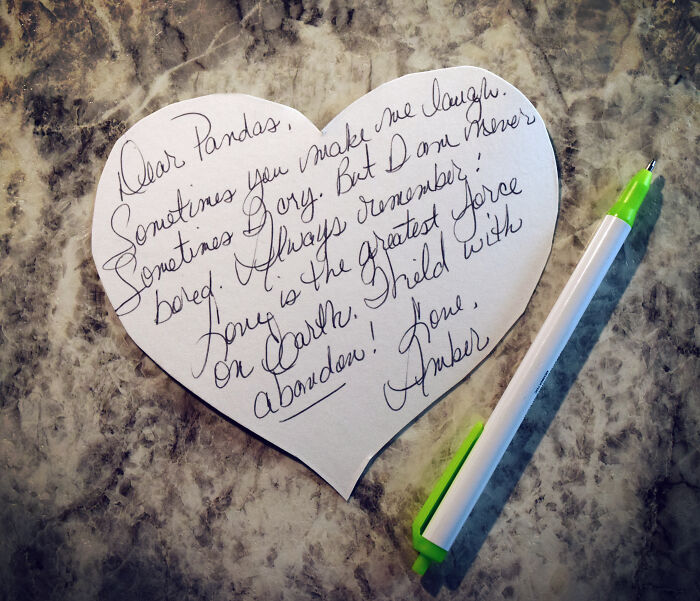 Dear Pandas,
Sometimes you make me laugh.
Sometimes I cry. But I am never
bored. Always remember:
Love is the greatest force
on Earth. Wield with
abandon! Love,
Amber